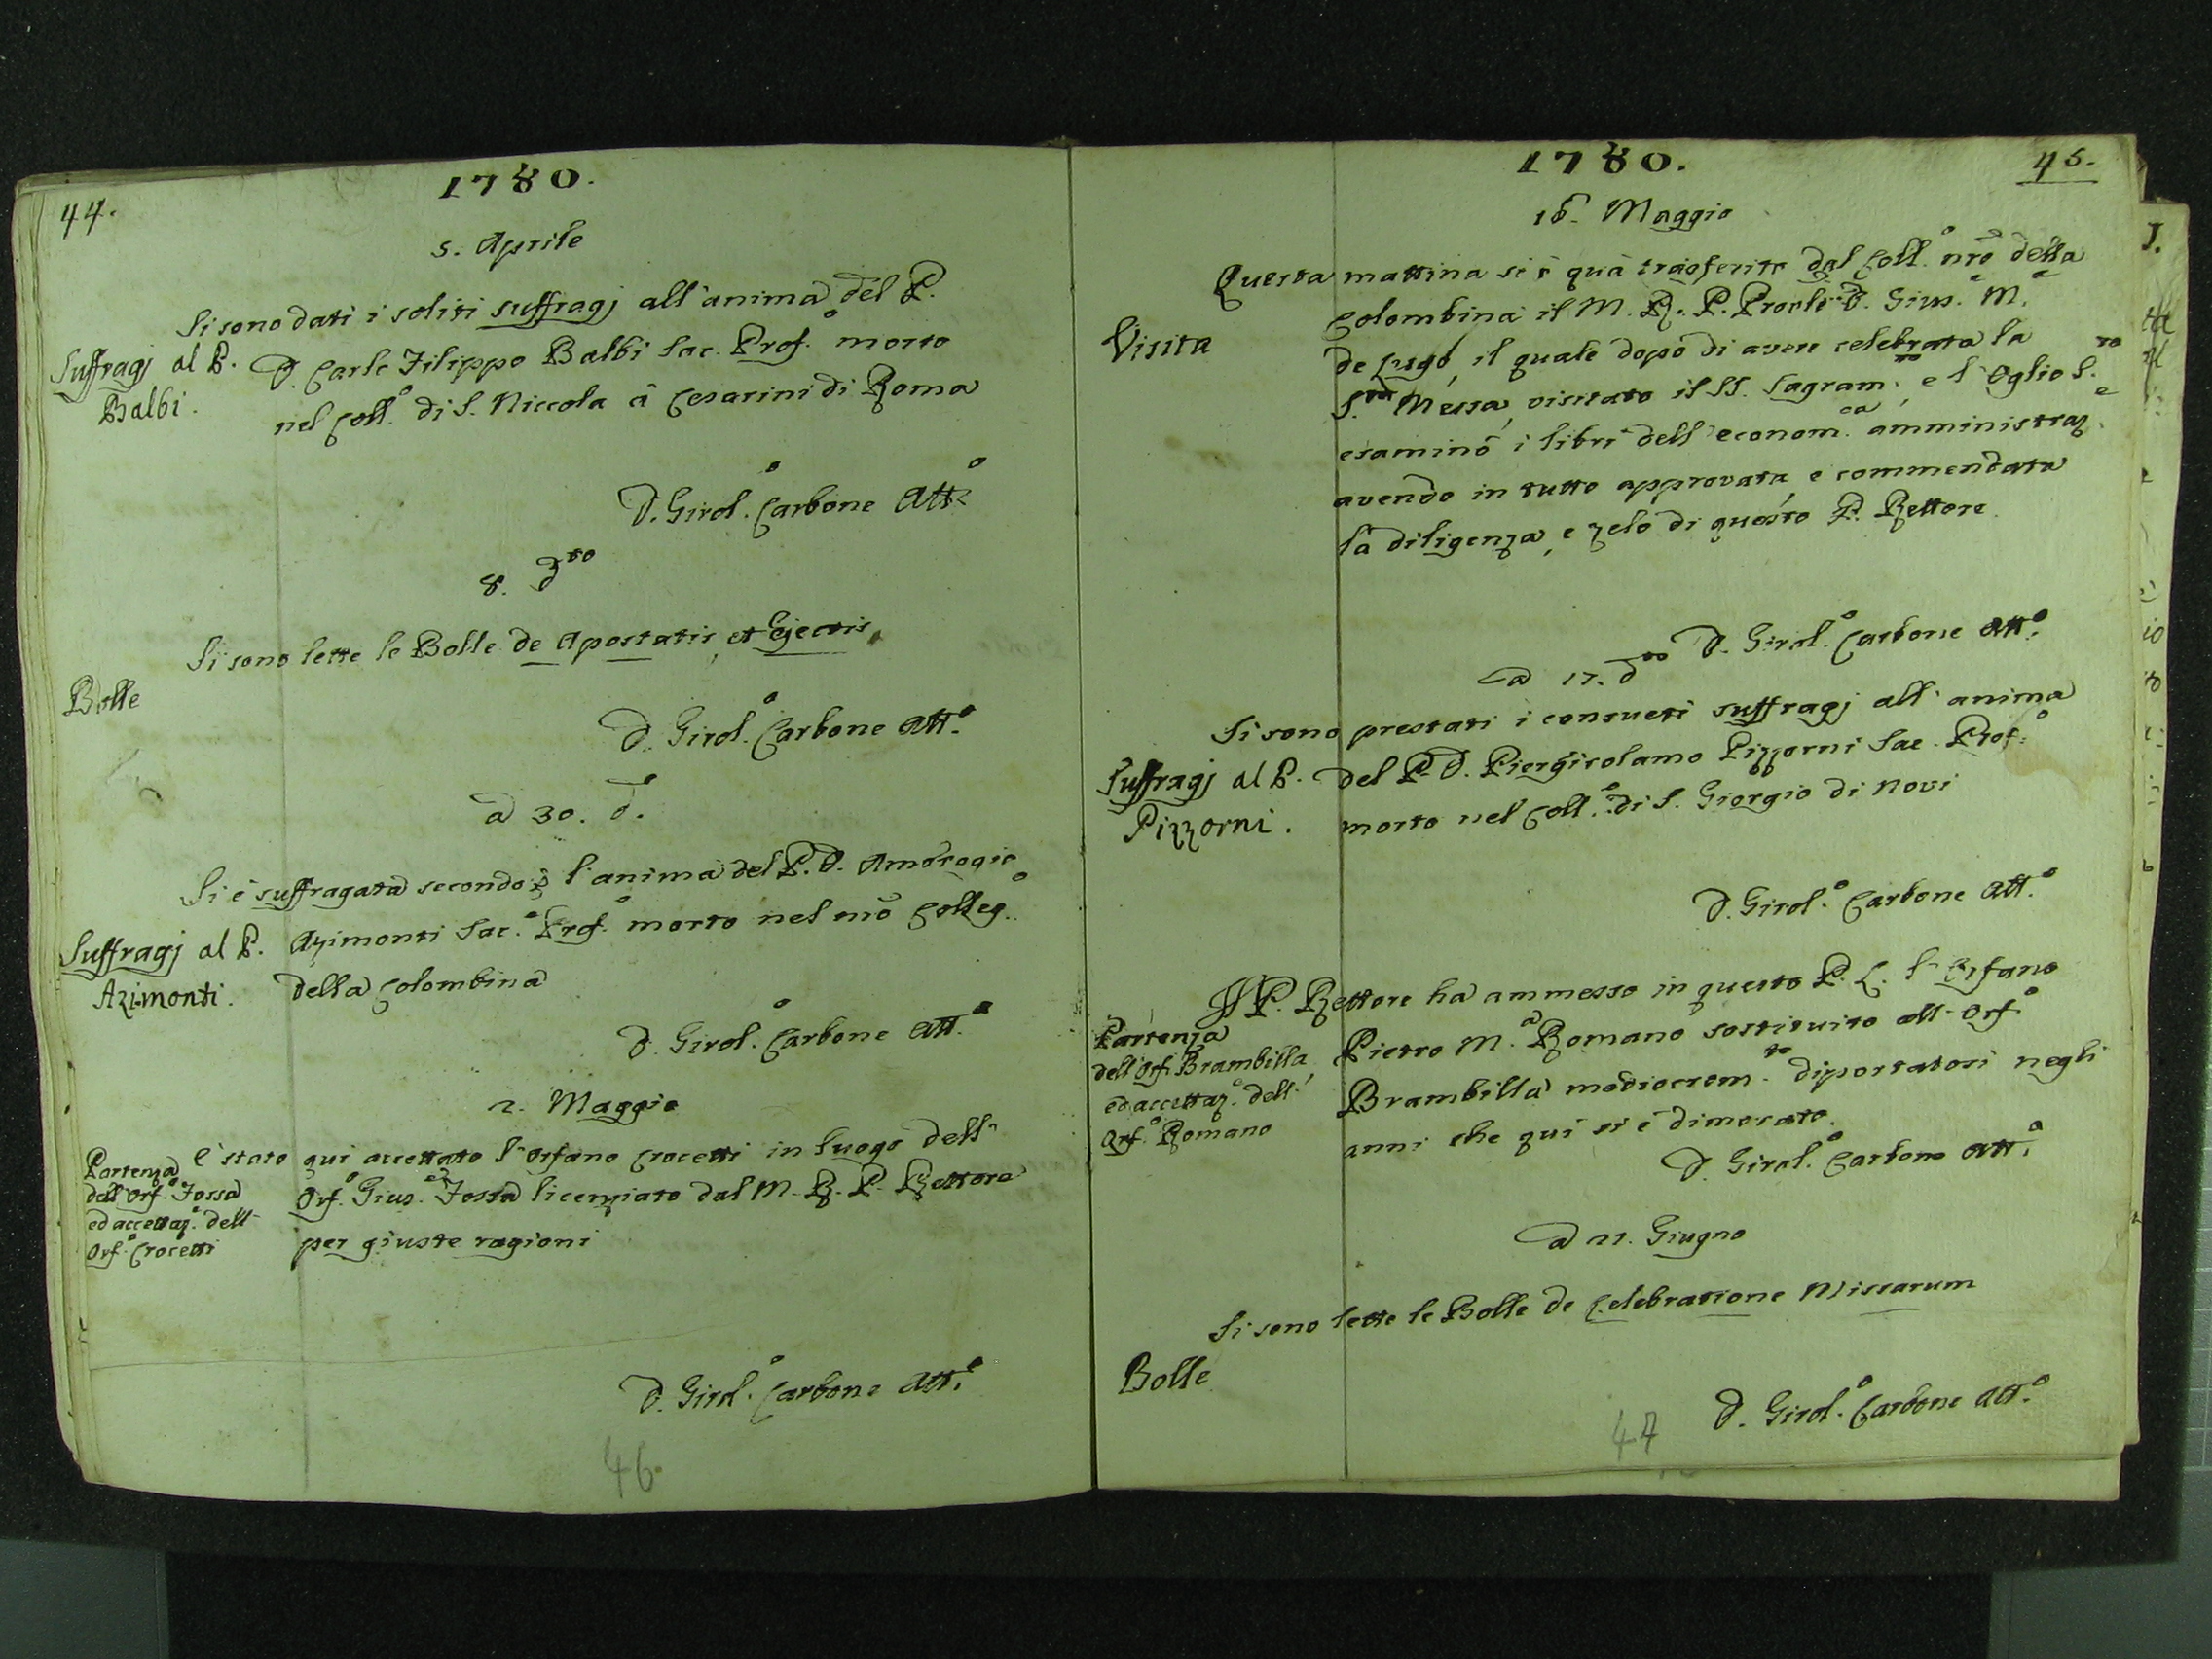 44.
1780.
5. Aprile
Si sono dati i soliti suffragj all'anima del P.
Suffragj al P.
Balbi.
D. Carlo Filippo Balbi Sac. Prof.o morto
nel Coll.o di S. Niccola à Cesarini di Roma
D. Girol.o Carbone Att.o
8. dto
Si sono lette le Bolle de Apostatis, et Ejectis
Bolle
D. Girol.o Carbone Att.o
a 30. d.o
Si è suffragata secondo l'anima del P. D. Ambrogio
Suffragj al P.
Azimonti.
Azimonti Sac.e Prof.o morto nel nro Colleg.o
della Colombina
D. Girol.o Carbone Att.o
2. Maggio
È stato qui accettato l'orfano Crocetti in luogo dell'
Partenza
dell'Orf.o Fossa
ed accettaz.e dell'
Orf.o Crocetti
Orf.o Gius.e Fossa licenziato dal M. R. P. Rettore
per giuste ragioni
D. Girol.o Carbone Att.o
46.
1780.
45.
16. Maggio
Questa mattina si è quà trasferito dal Coll.o nrõ della
Visita
Colombina il M. R. P. Proõle D. Gius.e M.a
de Lugo, il quale dopo di avere celebrata la
S.ta Messa, visitato il SS. Sagram.to, e l'Oglio S.to
esaminò i libri dell'econom.ca amministraz.e
avendo in tutto approvata e commendata
la diligenza, e zelo di questo P. Rettore
D. Girol.o Carbone Att.o
a 17. dto
Si sono prestati i consueti suffragj all'anima
Suffragj al P.
Pizzorni.
del P. D. Piergirolamo Pizzorni Sac. Prof.o
morto nel Coll.o di S. Giorgio di Novi
D. Girol.o Carbone Att.o
Il P. Rettore ha ammesso in questo P. L. l'Orfano
Partenza
dell'Orf. Brambilla,
ed accettaz.e dell'
Orf.o Romano
Pietro M.a Romano sostituito all'Orf.o
Brambilla mediocrem.te diportatosi negli
anni che qui si è dimorato.
D. Girol.o Carbone Att.o
a 21. Giugno
Si sono lette le Bolle de Celebratione Missarum
Bolle
D. Girol.o Carbone Att.o
47